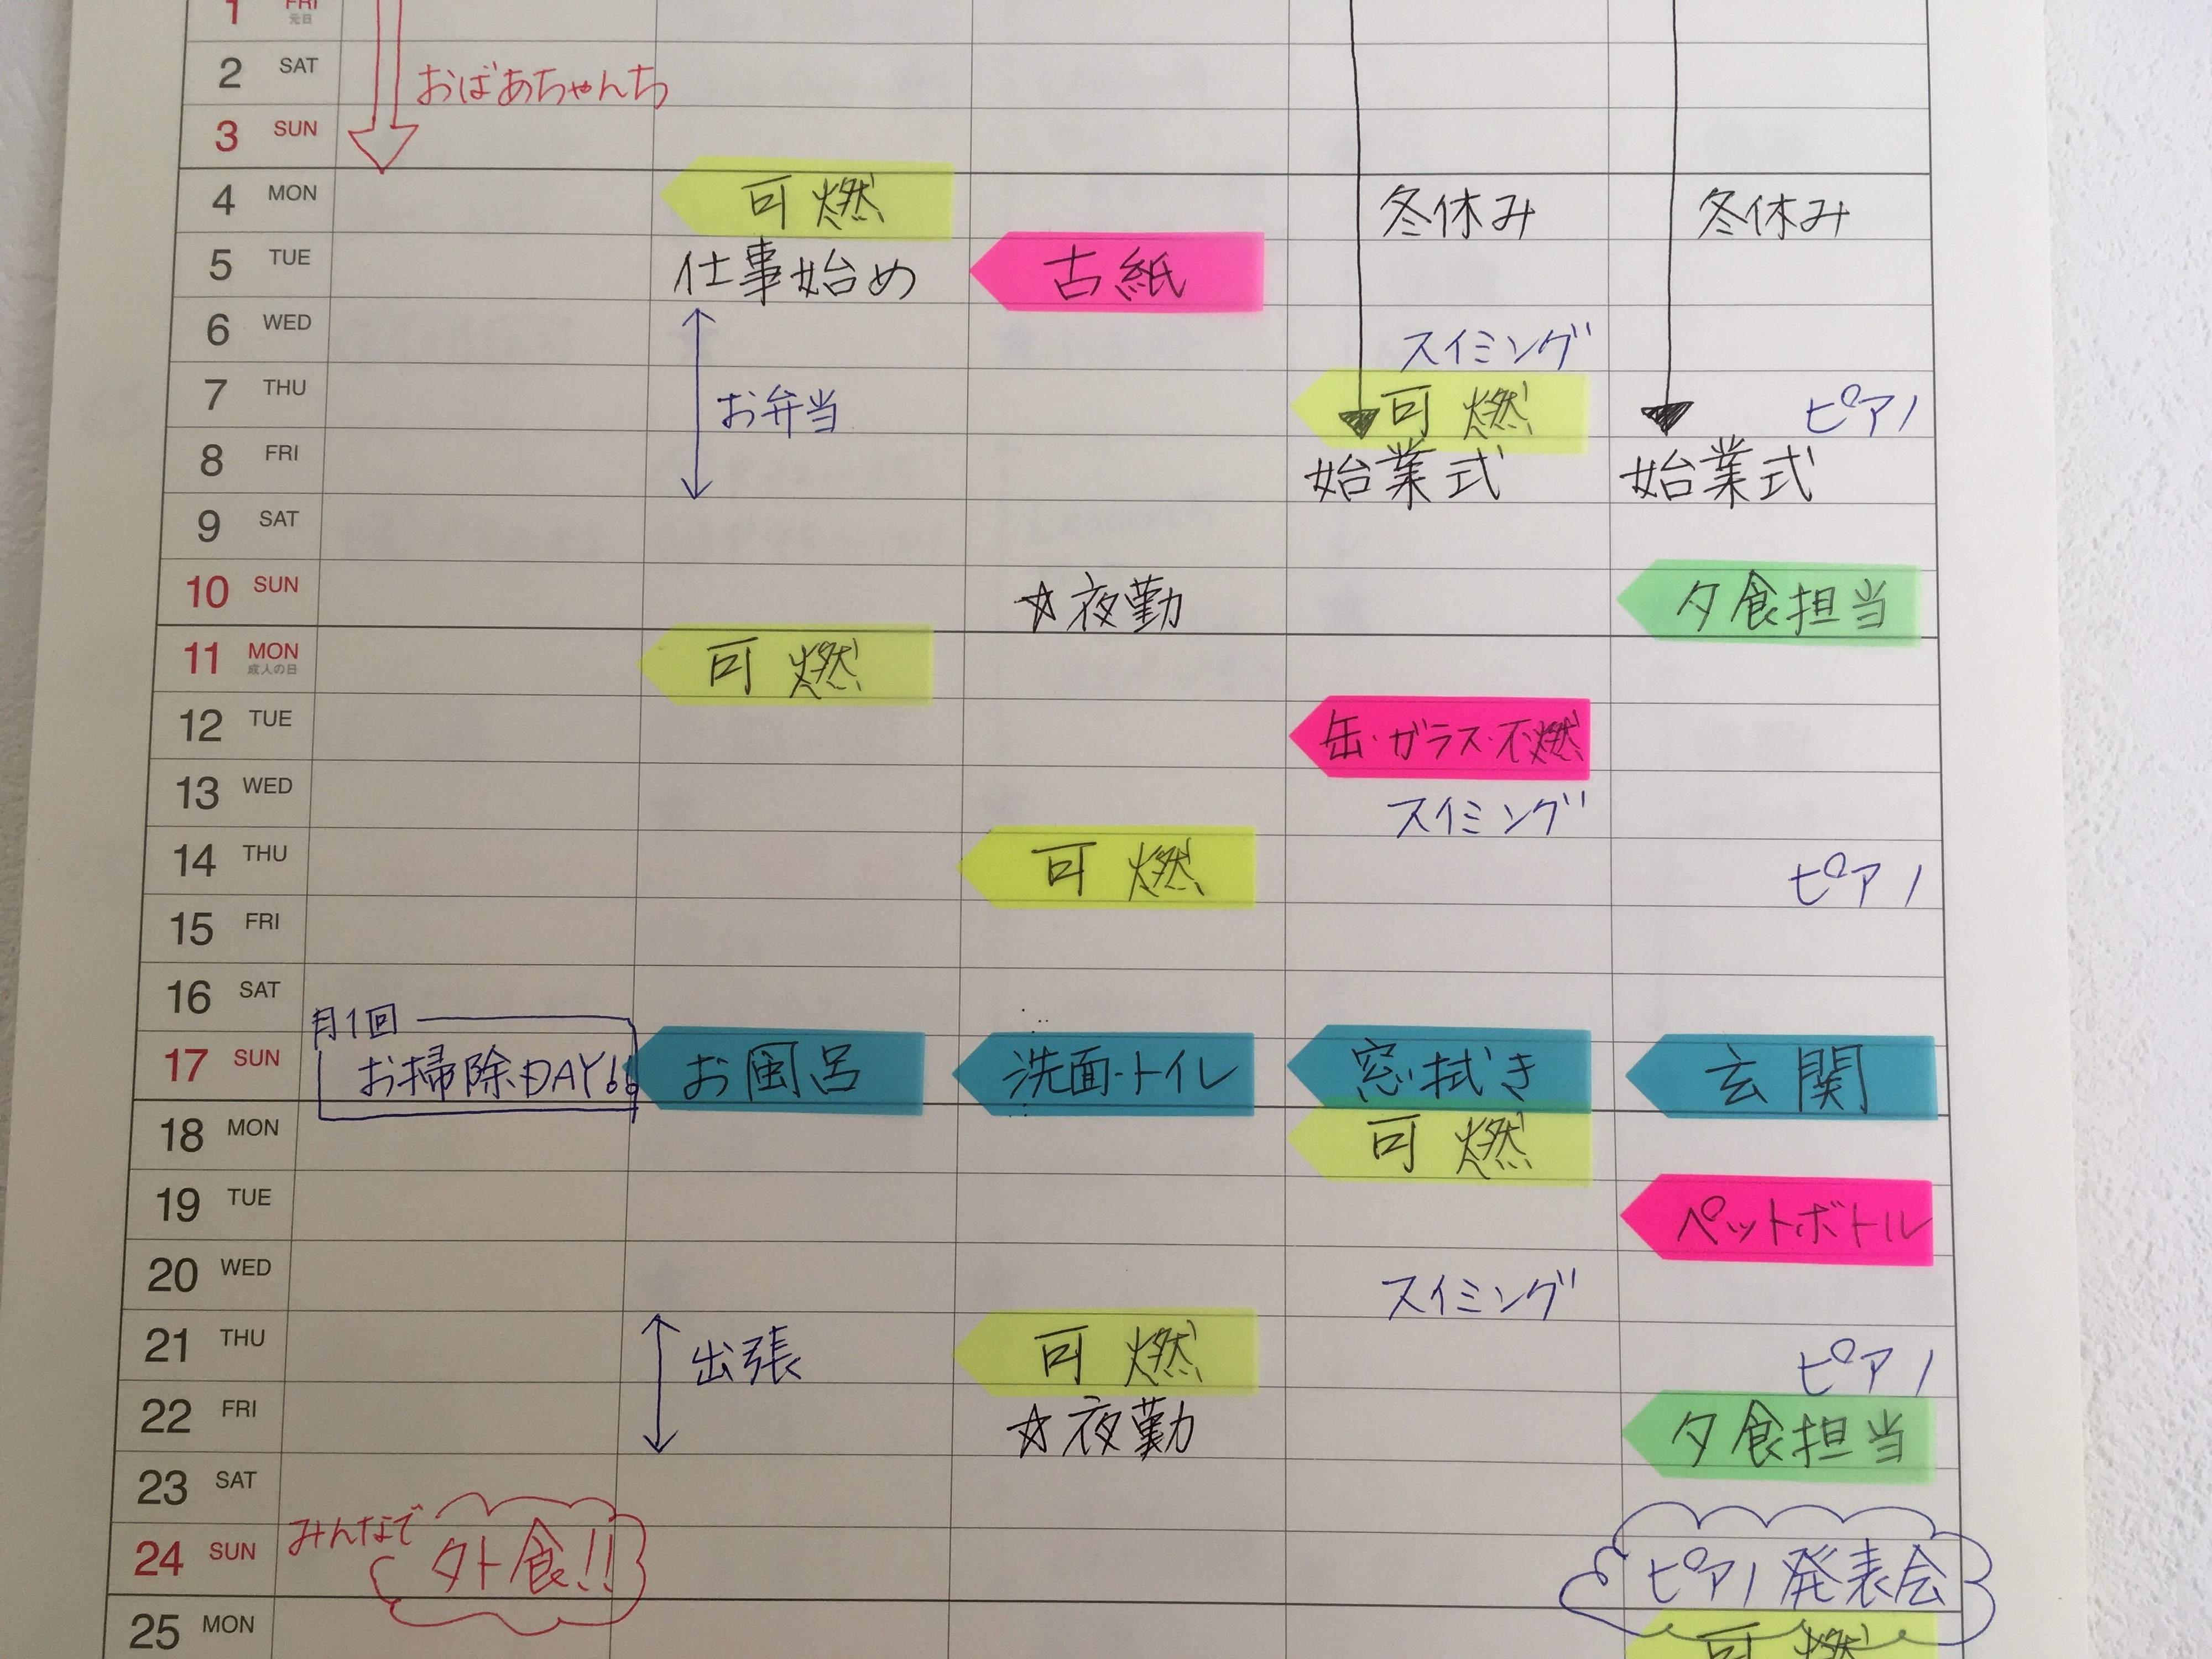 1 FRI
元日
2 SAT おばあちゃんち
3 SUN
4 MON 可燃 冬休み 冬休み
5 TUE 仕事始め 古紙
6 WED スイミング
7 THU お弁当 可燃 ピアノ
8 FRI 始業式 始業式
9 SAT
10 SUN ☆夜勤 夕食担当
11 MON 可燃
成人の日
12 TUE 缶・ガラス・不燃
13 WED スイミング
14 THU 可燃 ピアノ
15 FRI
16 SAT
月1回
17 SUN お掃除DAY!! お風呂 洗面・トイレ 窓拭き 玄関
18 MON 可燃
19 TUE ペットボトル
20 WED スイミング
21 THU 出張 可燃 ピアノ
22 FRI ☆夜勤 夕食担当
23 SAT
24 SUN みんなで 外食!! ピアノ発表会
25 MON 可燃